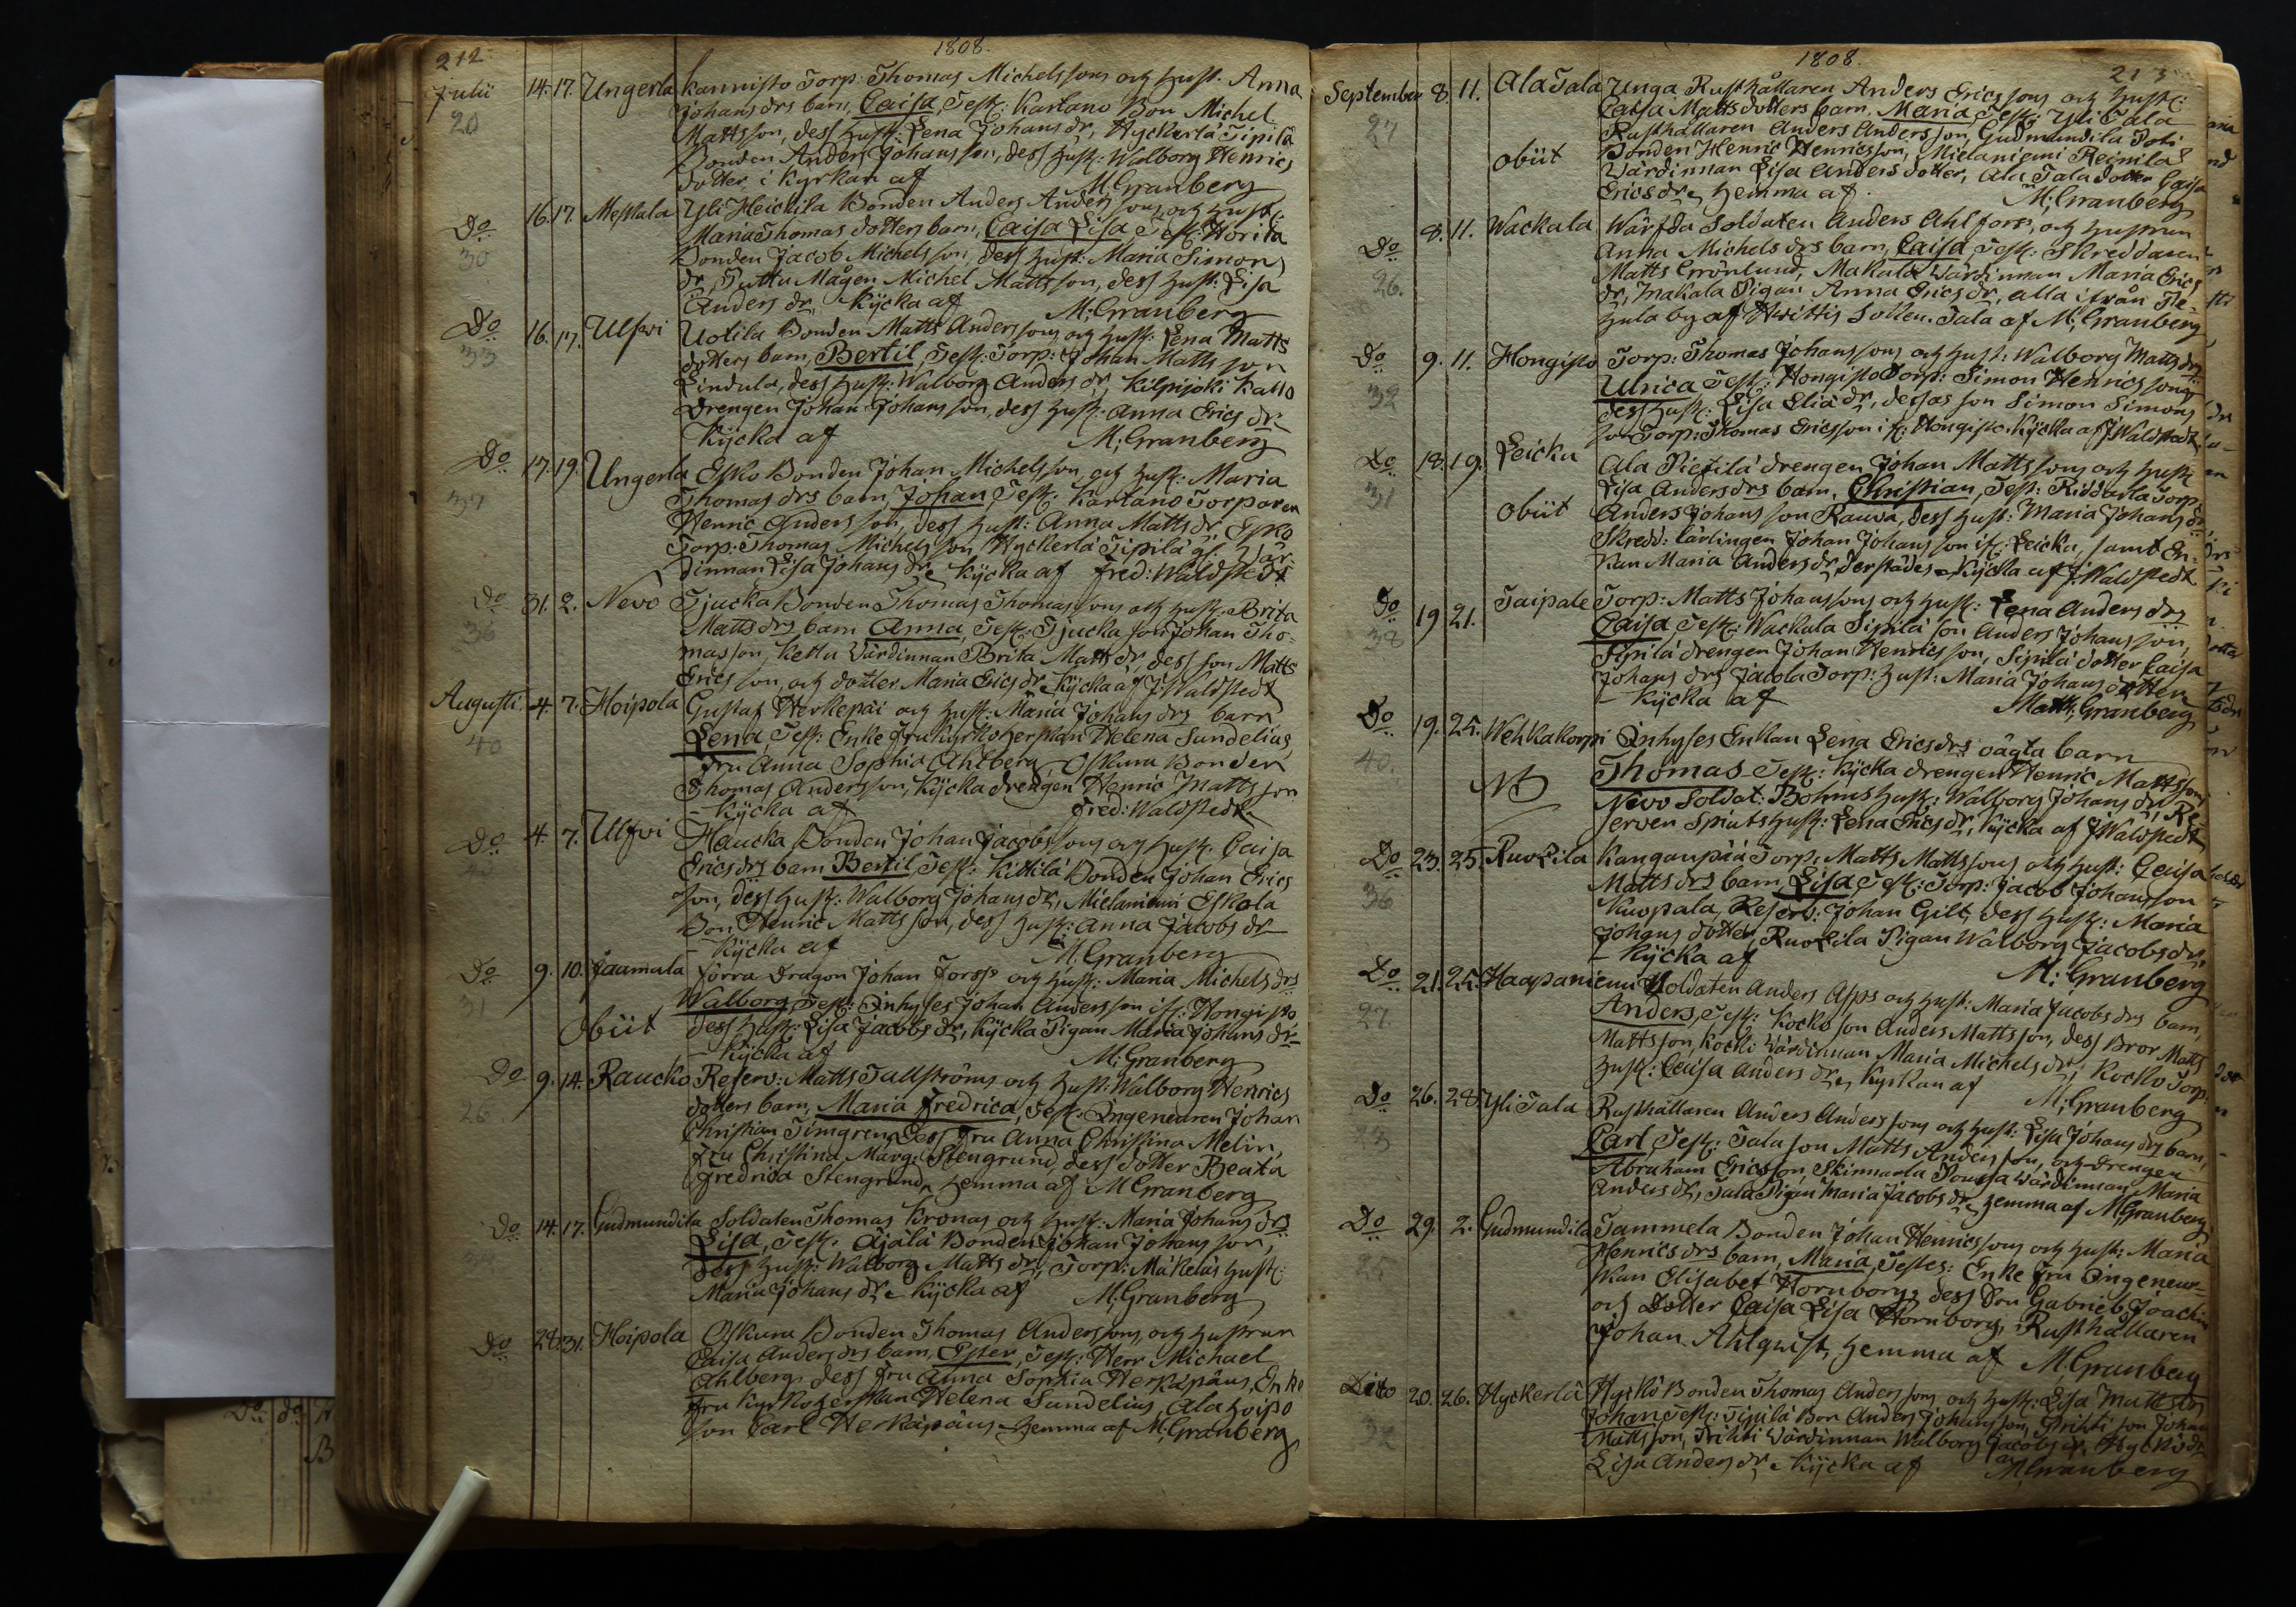 212
1808.
Julii 14. 17. Ungerla Kannisto Torp: Thomas Michelssons och Hust. Anna
20 Johansdrs barn, Caisa, Test: Kartano Bon Michel
Mattsson, dess Hust: Lena Johansdr, Hyckerlä Sipilä
Bonden Anders Johansson, dess Hust: Walborg Henrics
dotter, i Kyrkan af M: Granberg
Do 16. 17. Mestala Yli Heickila Bonden Anders Anderssons och Hust:
30 Maria Thomas dotters barn, Caisa Lisa Test:
Bonden Jacob Michelsson, dess Hust: Maria Simons
dr, Tuttu Mågen Michel Mattsson, dess Hust: Lisa
Anders dr, Kÿcka af M: Granberg
Do 16. 17. Ulfwi Uotila Bonden Matts Anderssons och Hust: Lena Matts
33 dotters barn, Bertil, Test: Torp: Johan Mattsson
Lindula, dess Hust: Walborg Anders dr, Kilpijoki
Drengen Johan Johansson, dess Hust: Anna Erics dr
Kÿcka af M: Granberg
Do 17. 19. Ungerla Esko Bonden Johan Michelsson och Hust: Maria
37 Thomas drs barn, Johan, Test: Kartano Torparen
Henric Andersson, dess Hust: Anna Matts dr, Esko
Torp: Thomas Michelsson, Hyckerlä Sipilä gl: Wär-
dinnan Lisa Johans dr, Kÿcka af Fred: Waldstedt
Do 31. 2. Nevo Tjucka Bonden Thomas Thomassons och Hust. Brita
36 Matts drs barn Anna, Test: Tjucka son Johan Tho-
masson, Kettu Wärdinnan Brita Matts dr, dess son Matts
Ericsson, och dotter Maria Erics dr, Kÿcka af F Waldstedt
Augusti 4. 7. Hoipola Gustaf Herkepäi och Hust: Maria Johans drs barn
40 Lena, Test: Enke Fru Kyrkoherskan Helena Sundelius,
Fru Anna Sophia Ahlberg, Oskura Bonden
Thomas Andersson, Kÿcka drengen Henric Mattsson
- Kÿcka af Fred: Waldstedt
Do 4. 7. Ulfwi Haucka Bonden Johan Jacobssons och Hust. Caisa
Erics drs barn Bertil, Test: Kittilä Bonden Johan Erics
son, dess Hust: Walborg Johans dr, Mielaniemi Eskola
Bon Henric Mattsson, dess Hust: Anna Jacobs dr
- Kÿcka af M. Granberg
Do 9. 10. Jaamala Förra Dragon Johan Forss och Hust: Maria Michels drs
31 Walborg, Test: Inhyses Johan Andersson if: Hongisto
Obiit dess Hust: Lisa Jacobs dr, Kÿcka Pigan Maria Johans dr
- Kÿcka af M: Granberg
Do 9. 14. Raucko Reserv: Matts Tallströms och Hust: Walborg Henrics
26 dotters barn, Maria Fredrica, Test: Ingeneuren Johan
Christian Timgren, Dess Fru Anna Christina Melin,
Fru Christina Marg: Stengrund, dess dotter Beata
Fredrica Stengrund, hemma af M Granberg
Do 14. 17. Gudmundila Soldaten Thomas Kronas och Hust: Maria Johans drs
Lisa, Test: Äjälä Bonden Johan Johansson,
dess Hust: Walborg Matts dr, Torp: Mäkeläs Hust:
Maria Johans dr, Kÿcka af M: Granberg
Do 28. 31. Hoipola Oskura Bonden Thomas Anderssons och Hustrun
Caisa Anders drs barn, Ester, Test: Herr Michael
Ahlberg, dess Fru Anna Sophia Herkäpäus, Enke
Fru Kyrkoherskan Helena Sundelius, Ala hoipo
son Carl Herkäpäus - hemma af M: Granberg
1808.
213
September 8. 11. Ala Tala Unga Rusthållaren Anders Ericssons och Hust:
27 Caisa Matts dotters barn. Maria, Test: Yli Tala
Rusthållaren Anders Andersson, Gudmundila
obiit Bonden Henric Henricsson, Mielaniemi Reinilä
Wärdinnan Lisa Anders dotter, Ala Tala dotter Caisa
Erics dr, hemma af M: Granberg
Do 8. 11. Wackala Wärfda Soldaten Anders Ahlfors, och Hustrun
26. Anna Michels drs barn, Caisa, Test: Skreddaren
Matts Grönlund, Makala Wärdinnan Maria Erics
dr, Makala Pigan Anna Erics dr, alla ifrån
hula by af Hvittis Sokn. Tala af M: Granberg
Do 9. 11. Hongisto Torp: Thomas Johanssons och Hust: Walborg Matts drs
32 Ulrica Test: Hongisto Torp: Simon Henricssons
dess Hust: Lisa Eliæ dr, dessas son Simon Simons
son Torp: Thomas Ericsson if: Hongisto. Kÿcka af F Waldstedt
Do 18. 19. Leicku Ala Pietilä drengen Johan Mattssons och Hust
31 Lisa Anders drs barn, Christian, Test: Riddarla Torp
obiit Anders Johansson Rauva, dess Hust: Maria Johans dr,
Skredd: lärlingen Johan Johansson if: Leicku, samt En-
kan Maria Anders dr, derstädes Kÿcka af F: Waldstedt
Do 19 21. Taipale Torp: Matts Johanssons och Hust: Lena Anders drs
38 Caisa, Test: Wackala Sipilä son Anders Johansson,
Sipilä drengen Johan Henricsson, Sipilä dotter Caisa
Johans dr, Jacola Torp: Hust: Maria Johans dotter
- Kÿcka af Matts: Granberg
Do 19. 25. Wehkakorpi Inhyses Enkan Lena Erics drs oägta barn
40. Thomas - Test: Kÿcka drengen Henric Mattsson,
NB Nevo Soldat: Bohms Hust: Walborg Johans dr, Re-
serven Spiuts Hust: Lena Erics dr, Kÿcka af F Waldstedt
Do 23. 25. Ruotila Kanganpää Torp: Matts Mattssons och Hust: Caisa
36 Matts drs barn, Lisa Test: Torp: Jacob Johansson
Kuopala, Reserv: Johan Gilt, dess Hust: Maria
Johans dotter, Ruotila Pigan Walborg Jacobs dr,
- Kÿcka af M: Granberg
Do 21. 25. Haapaniemi Soldaten Anders Asps och Hust: Maria Jacobs drs barn,
27 Anders, Test: Kocko son Anders Mattsson, dess Bror Matts
Mattsson, Kocki Wärdinnan Maria Michels dr, Kocko Torp:
Hust: Caisa Anders dr, Kyrkan af M: Granberg
Do 26. 28. Yli Tala Rusthållaren Anders Anderssons och Hust: Lisa Johans drs barn,
Carl, Test: Tala son Matts Andersson, och drengen
Abraham Ericsson, Skinnarla Wärdinnan Maria
Anders dr, Tala Pigan Maria Jacobs dr, hemma af M: Granberg
Do 29. 2. Gudmundila Tammela Bonden Johan Henricssons och Hust: Maria
25 Henrics drs barn, Maria, Testes: Enke Fru Ingeneur-
skan Elisabet Hornborg, dess Son Gabriel Joachim
och Dotter Caisa Lisa Hornborg, Rusthållaren
Johan Ahlqvist, hemma af M: Granberg
Dito 20. 26. Hyckerlä Hyckö Bonden Thomas Anderssons och Hust: Lisa Matts drs
32 Johan Test: Sipilä Bon Anders Johansson, Prihti son Johan
Mattsson, Prihti Wärdinnan Walborg Jacobs dr, Hyckö dr
Lisa Anders dr, Kÿcka af M: Granberg